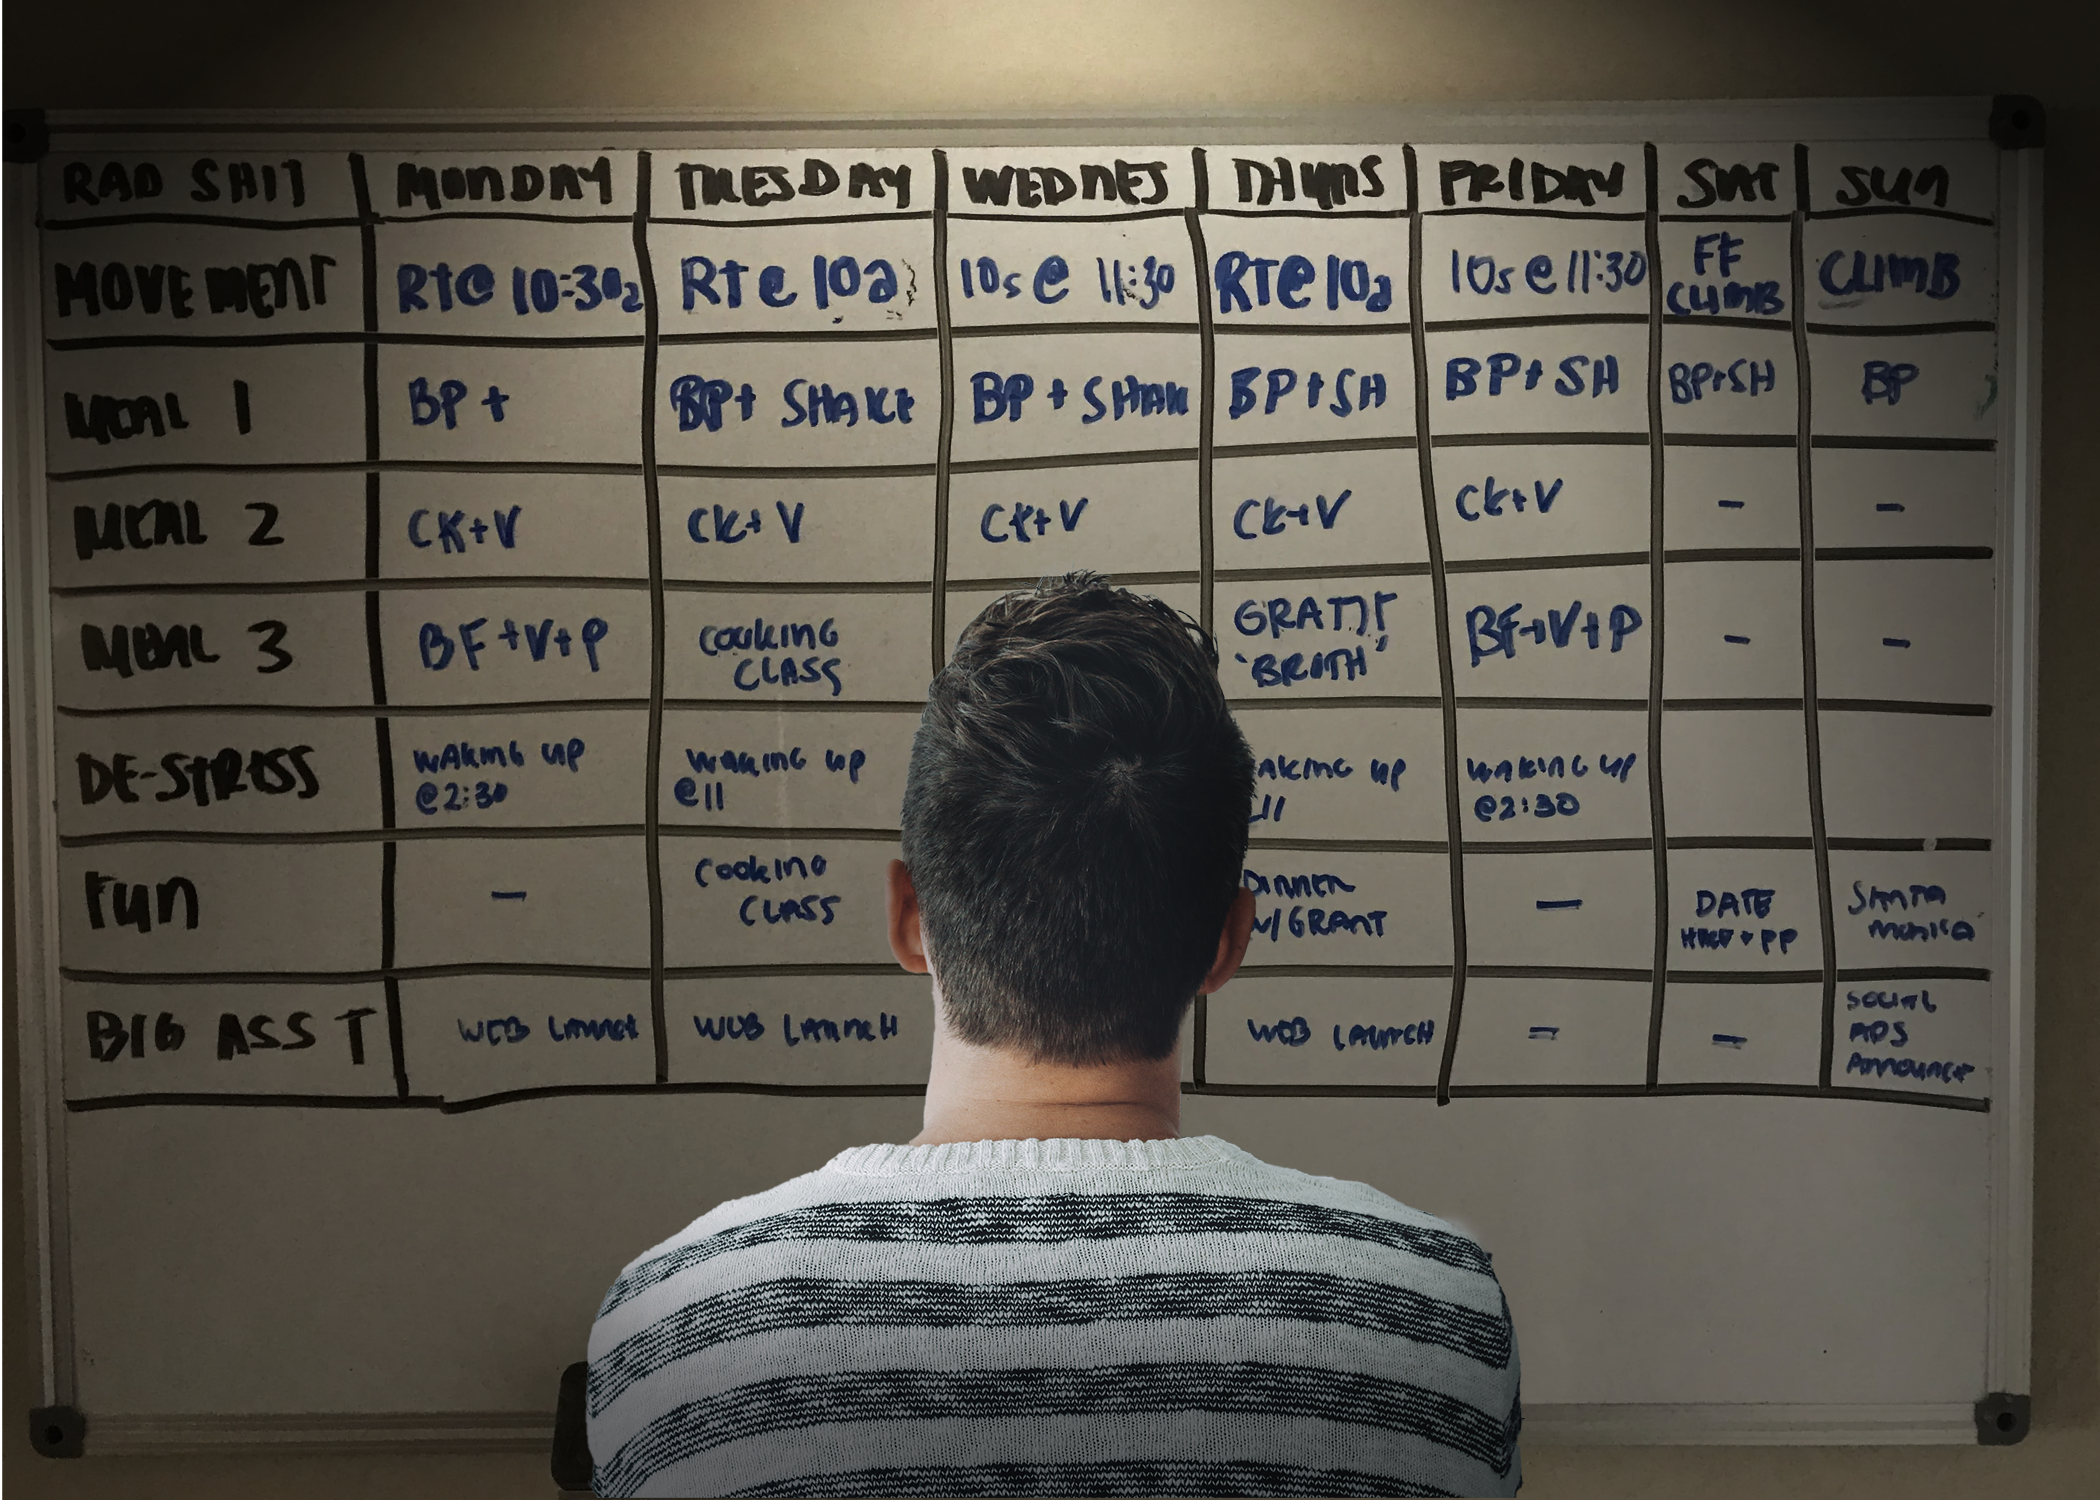 RAD SHIT MONDAY TUESDAY WEDNES THURS FRIDAY SAT SUN
MOVEMENT RT@ 10:30a RT@ 10a 10s@ 11:30 RT@ 10a 10s@ 11:30 FF CLIMB CLIMB
MEAL 1 BP+ BP+ SHAKE BP+ SHAK BP+SH BP+SH BP+SH BP
MEAL 2 CK+V CK+V CK+V CK+V CK+V - -
MEAL 3 BF+V+P COOKING CLASS 'BROTH' BF+V+P - -
DE-STRESS WAKING UP @2:30 WAKING UP @11 AKING UP 11 WAKING UP @2:30
FUN - COOKING CLASS - DINNER W/GRANT - DATE + PP SANTA MONICA
BIG ASS T WEB LAUNCH WEB LAUNCH WEB LAUNCH - - SOCIAL ADS ANNOUNCE